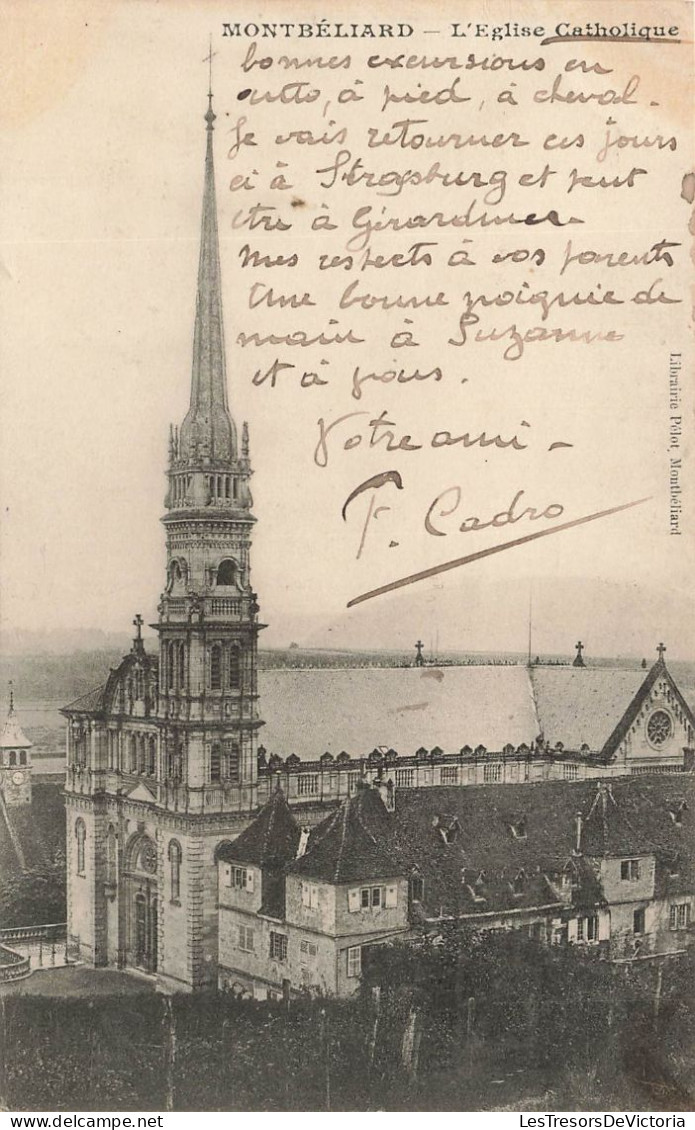 MONTBÉLIARD — L'Eglise Catholique
bonnes excursions en
autto, à pied, à cheval.
Je vais retourner ces jours
ci à Strasburg et peut
être à Gérardmer.
Mes respects à vos parents
Une bonne poignie de
main à Suzanne
et à vous.
Votre ami —
F. Cadro
Librairie Pélot, Montbéliard
LesTresorsDeVictoria